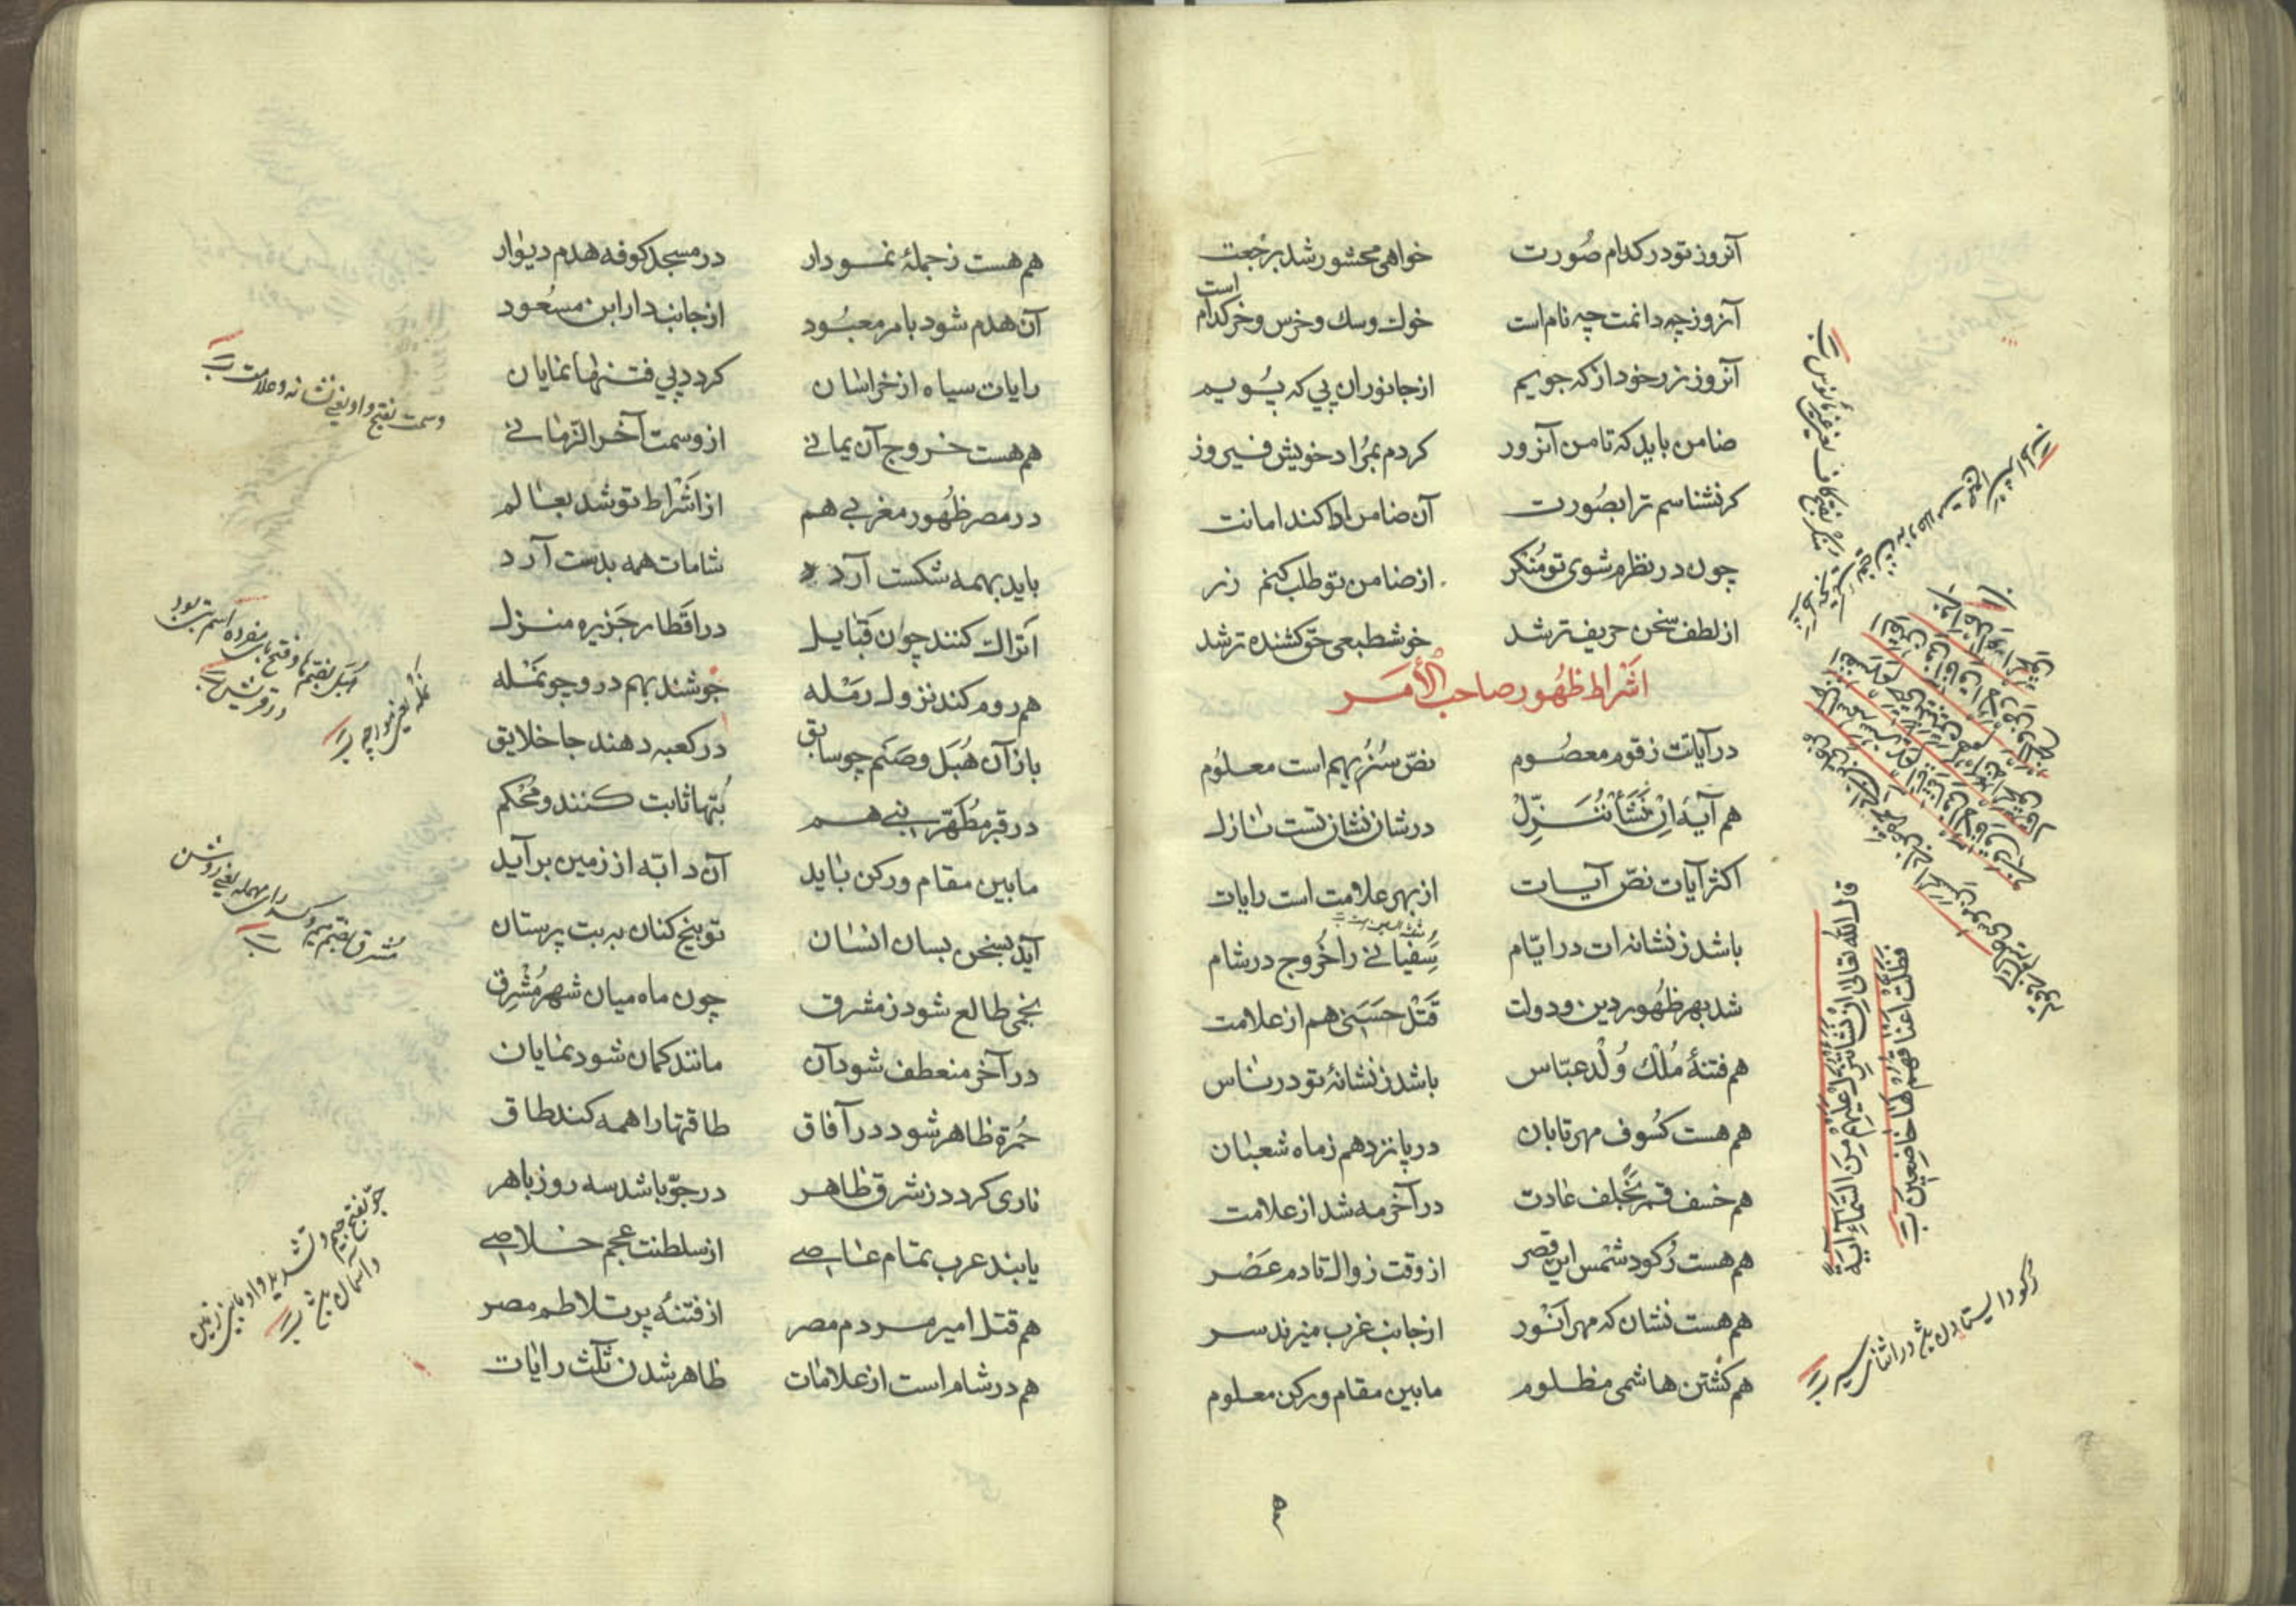 آنروز تو در کدام صُورت خواهی محشور شد برجعت
آنروز چه دانمت چه نام است خوك و سك و خرس و خر کدام است
آنروز زر خود از که جویم از جانوران پی که پُویم
ضامن باید که تا من آنروز کردم بمُراد خویش فیروز
کر نشناسم ترا بصُورت آن ضامن ادا کند امانت
چون در نظرم شوی تو مُنکر از ضامن تو طلب کنم زر
از لطف سخن حریف تر شد خوشطبعی حق کشنده تر شد
اَشراط ظهُور صاحب الأمَر
در آیاتت ز قوم معصُوم نصّ سَنُرِیهِم است معلُوم
هم آیهٔ اِنْ نَشَأْ نُنَزِّلْ در شان نشان تست نازل
اکثر آیات نصّ آیات از بهر علامت است رایات
باشد ز نشانه ات در ایّام سُفیانی را خُروج در شام
شد بهر ظهُور دین و دولت قَتْل حَسَنی هم از علامت
هم فتنهٔ مُلْك وُلْد عبّاس باشد ز نشانهٔ تو در ناس
هم هست کسُوف مهر تابان در پانزدهم ز ماه شعبان
هم خسف قمر بخلف عادت در آخر مه شد از علامت
هم هست رُکود شمْس این قصر از وقت زوال تا دم عَصْر
هم هست نشان که مهر اَنْور از جانب غرب میزند سر
هم کشتن هاشمی مظلوم مابین مقام و رکن معلوم
قال الله تعالی اِنْ نَشَأْ نُنَزِّلْ عَلَیْهِمْ مِنَ السَّمَآءِ آیَةً
فَظَلَّتْ اَعْناقُهُمْ لَهَا خَاضِعِین
رکود ایستادن در اثنای سیر
هم هست ز جملهٔ نمودار در مسجد کوفه هدم دیوار
آن هدم شود بامر معبُود از جانب دار ابن مسعُود
رایات سیاه از خراسان کردد پی فتنها نمایان
هم هست خروج آن یمانی از وسمت آخر الزّمانی
در مصر ظهُور مغربی هم از اَشْراط تو شد بعالم
باید بهمه شکست آرد شامات همه بدست آرد
اَتراك کنند چون قبایل در اَقطار جَزیره منزل
هم روم کند نزول رَمْله جوشند بهم درو چو نَمْله
باز آن هُبَل و صَنَم چو سابق در کعبه دهند جا خلایق
در قبر مُطَهّر نبی هم بُتها ثابت کنند و محْکم
مابین مقام و رکن باید آن دابّه از زمین برآید
آید بسخن بسان انسان توبیخ کنان به بت پرستان
نجمی طالع شود ز مشرق چون ماه میان شهر مُشْرِق
در آخر منعطف شود آن مانند کمان شود نمایان
حُمرة ظاهر شود در آفاق طاقتها را همه کند طاق
ناری کردد ز شرق ظاهر در جوّ باشد سه روز باهر
یابند عرب تمام عاصی از سلطنت عجم خلاصی
هم قتل امیر مردم مصر از فتنهٔ پر تلاطم مصر
هم در شام است از علامات ظاهر شدن ثَلٰث رایات
وسمت بفتح واو یعنی نشانه و علامت
هبل بضم ها و فتح بای مفرده اسم بت بود
در قریش
نمله یعنی مورچه
مُشرِق بضم میم و کسر رای مهمله یعنی روشن
جوّ بفتح جیم و تشدید واو مابین زمین
و آسمان